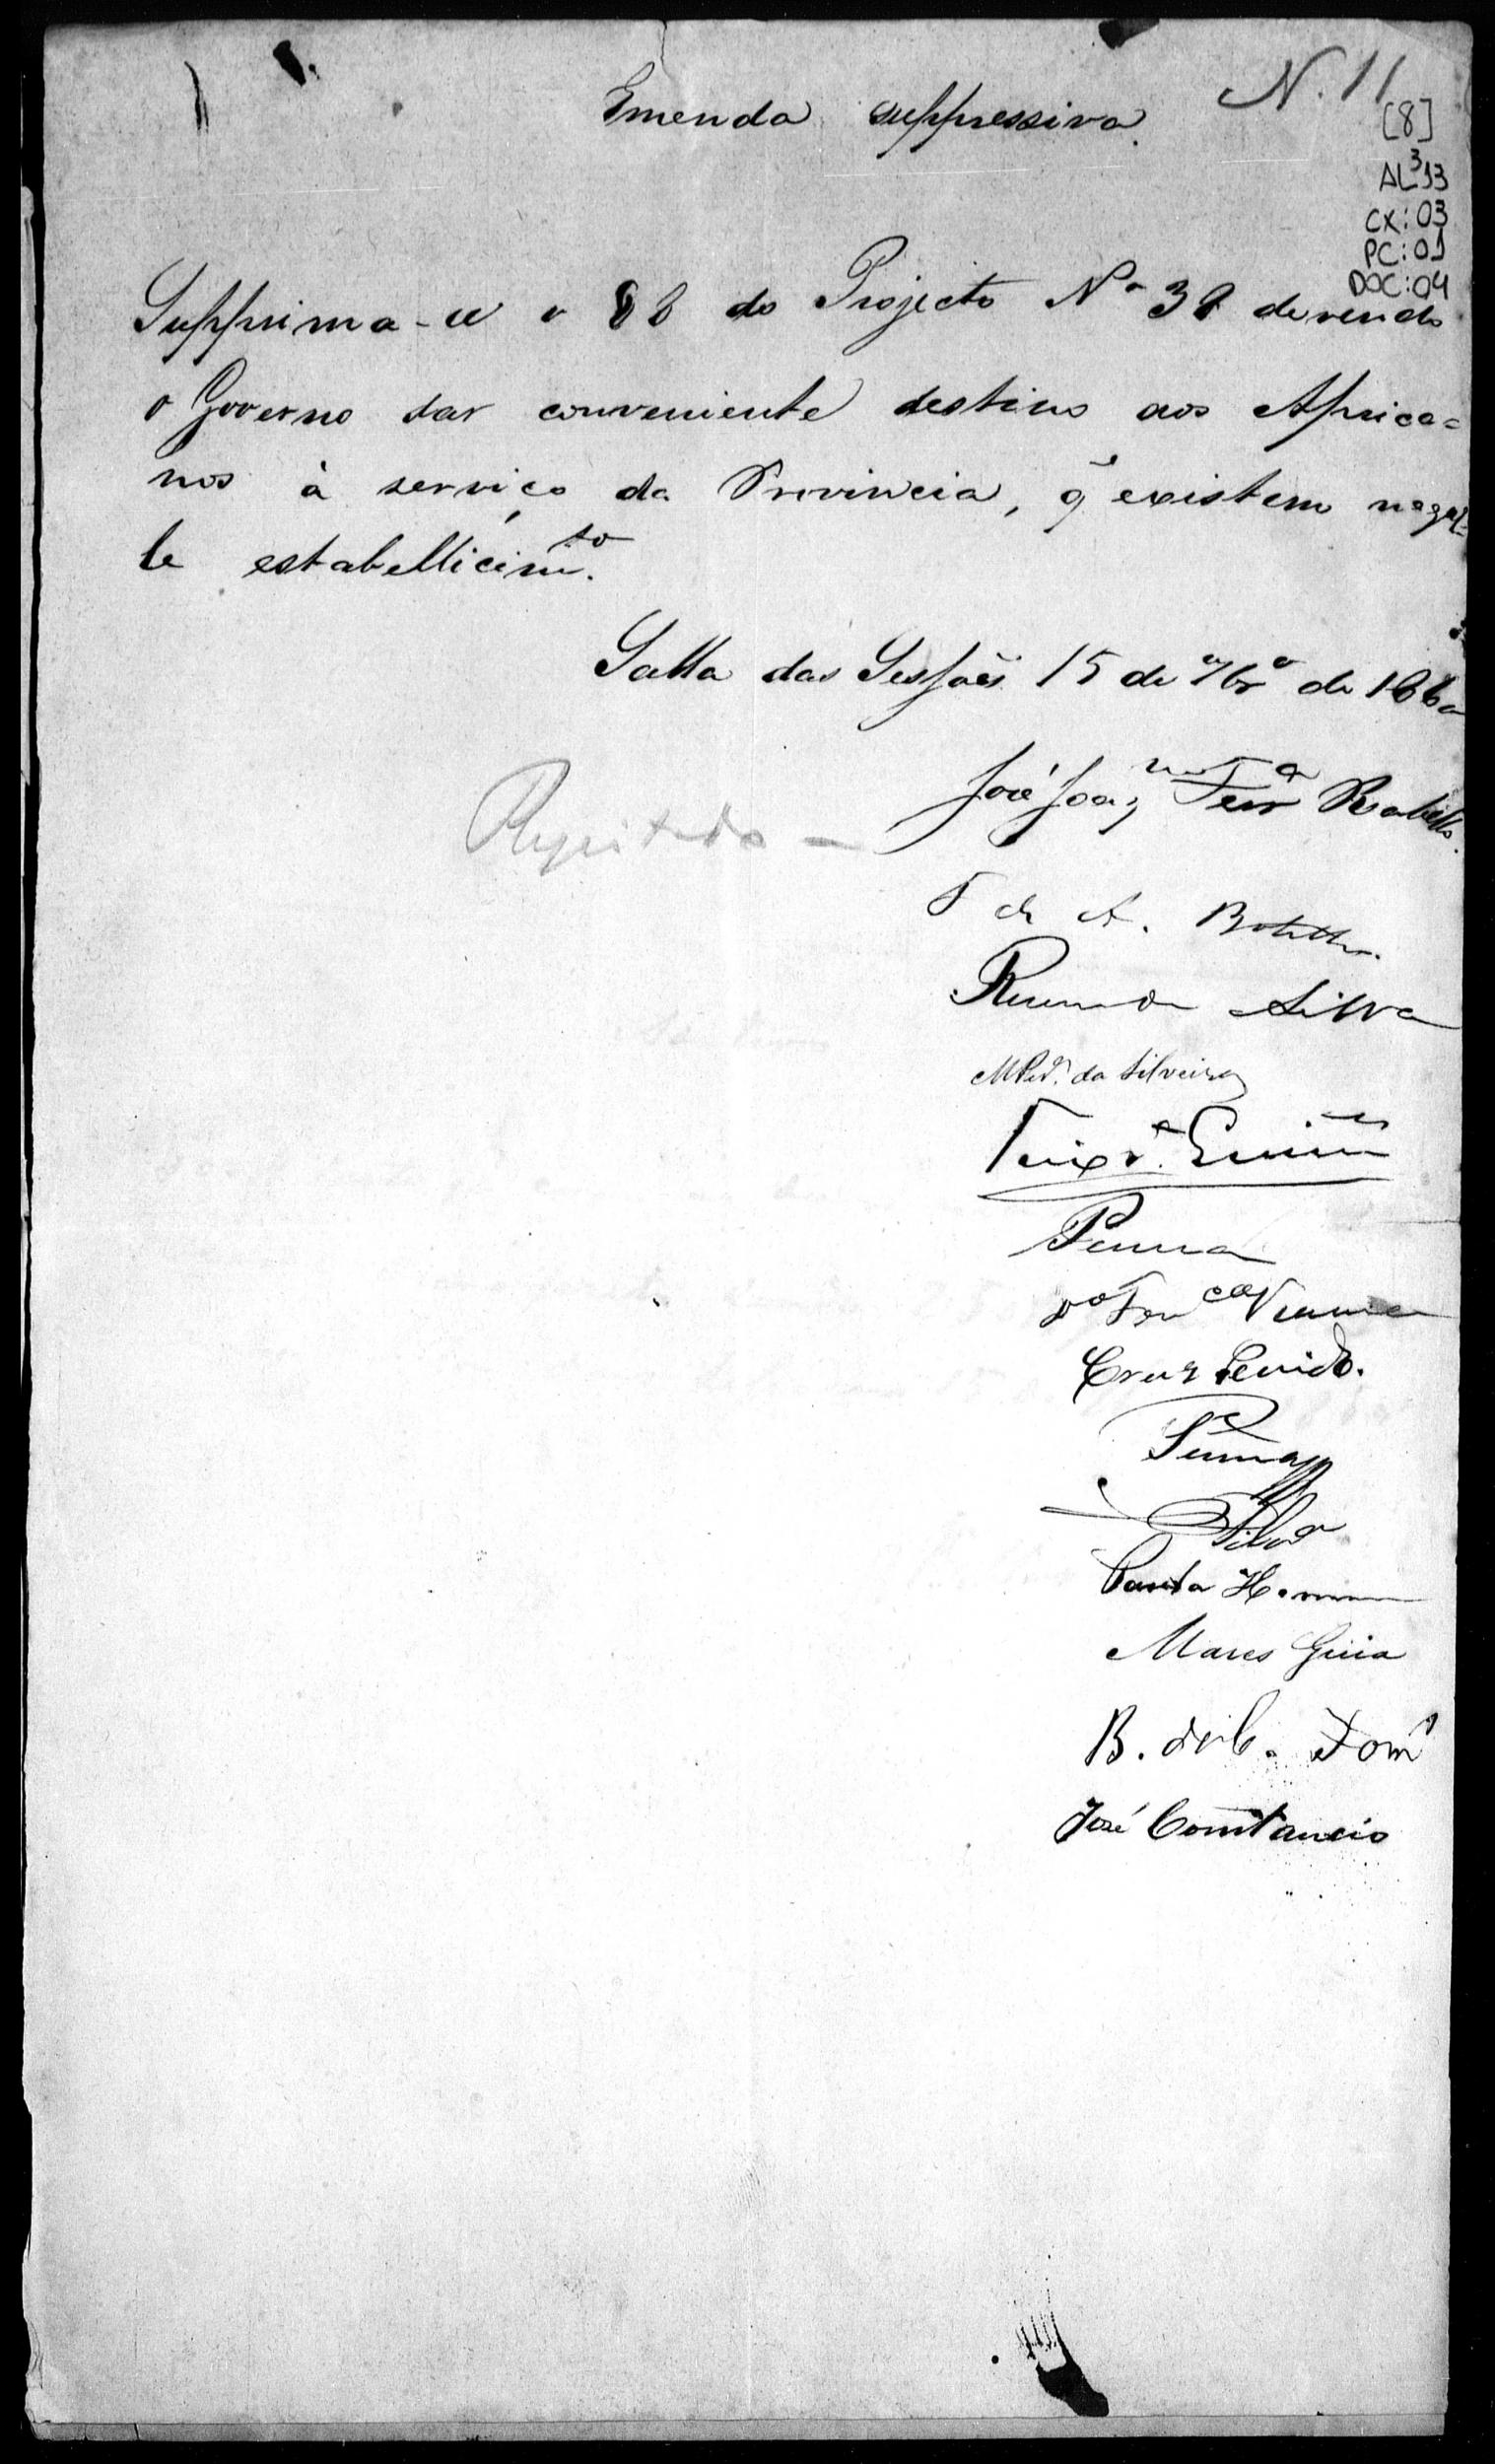 N. 11
Emenda suppressiva.
[8]
AL³13
CX: 03
PC: 01
DOC: 04
Supprima-se o § 8 do Projecto Nº 38 devendo
o Governo dar conveniente destino aos Africa=
nos à serviço da Provincia, q̃ existem naquel-
le estabellecimto.
Salla das Sessões 15 de 7brº de 1860
José Joaqm Teixra Rabello.
Regeitado —
F de A. Botelho.
Silva
MPed. da Silveira
Teixra
Penna
Vianna
Cruz
Penna
Silva
Mares Guia
B. de C.
José Constancio